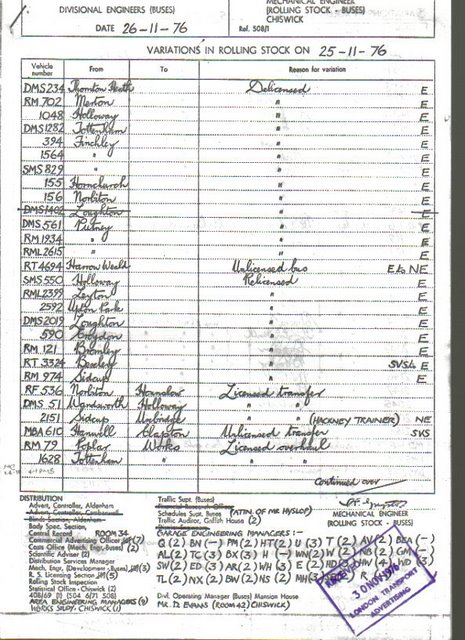 DIVISIONAL ENGINEERS (BUSES)
MECHANICAL ENGINEER
(ROLLING STOCK - BUSES)
CHISWICK
DATE 26-11-76
Ref. 508/1
VARIATIONS IN ROLLING STOCK ON 25-11-76
Vehicle number From To Reason for variation
DMS 234 Thornton Heath Delicensed E
RM 702 Merton " E
1048 Holloway " E
DMS 1282 Tottenham " E
394 Finchley " E
1564 " " E
SMS 829 " " E
155 Hornchurch " E
156 Norbiton " E
DMS 1402 Loughton " E
DMS 561 Putney " E
RM 1934 " " E
RML 2615 " " E
RT 4694 Harrow Weald Unlicensed bus E to NE
SMS 550 Holloway Relicensed E
RML 2399 Leyton " E
2592 Upton Park " E
DMS 2019 Loughton " E
590 Croydon " E
RM 121 Bromley " E
RT 3324 Bexley " E
RM 974 Sidcup " E
RF 536 Norbiton Hounslow Licensed transfer
DMS 51 Wandsworth Holloway " "
2151 Sidcup Uxbridge " " (HACKNEY TRAINER) NE
MBA 610 Hanwell Clapton Unlicensed transfer SKS
RM 79 Poplar Works Licensed overhaul
1628 Tottenham " " "
Continued over
DISTRIBUTION
Advert. Controller, Aldenham
Body Spec. Section
Central Record ROOM 34
Commercial Advertising Officer (7)
Costs Office (Mech. Engr. Buses) (2)
Scientific Adviser (2)
Distribution Services Manager
Mech. Engr. (Development - Buses) (3)
R. S. Licensing Section (5)
Rolling Stock Inspection
Statistical Office - Chiswick (2)
AREA ENGINEERING MANAGERS
WORKS STUDY - CHISWICK (1)
Traffic Supt. (Buses)
Schedules Supt. Buses (ATTN. OF MR HYSLOP)
Traffic Auditor, Griffith House (2)
MECHANICAL ENGINEER
(ROLLING STOCK - BUSES)
GARAGE ENGINEERING MANAGERS :-
Divl. Operating Manager (Buses) Mansion House
Mr. D. EVANS (ROOM 42) CHISWICK)
30 NOV 1976
LONDON TRANSPORT
ADVERTISING